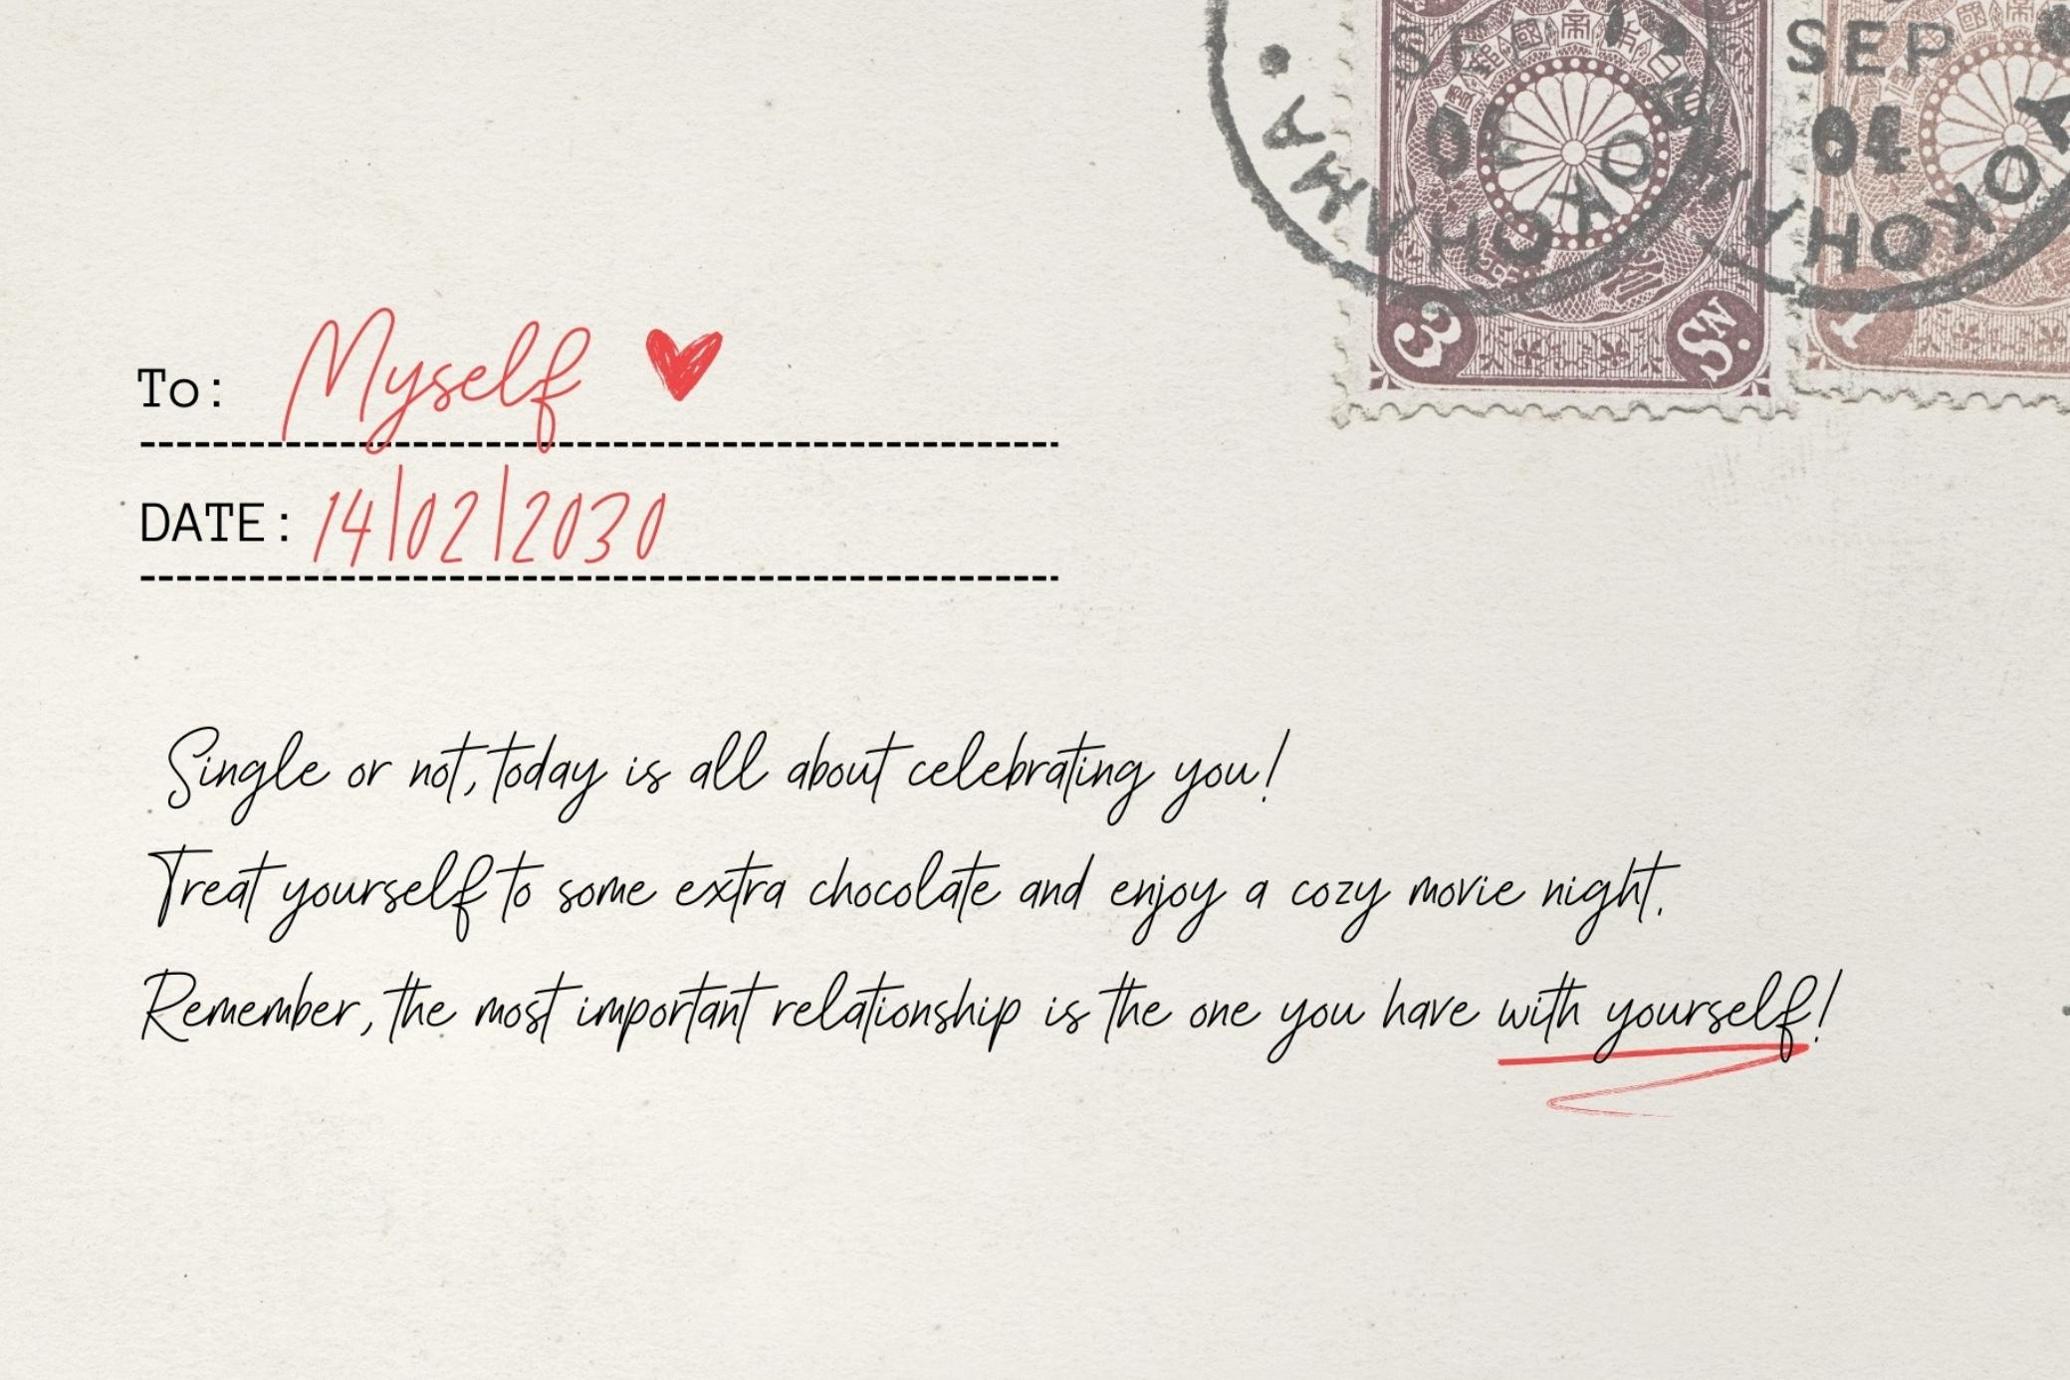 SEP
04
YOKOHAMA
SEP
04
YOKOHAMA
3 Sn.
1
To: Myself
DATE: 14|02|2030
Single or not, today is all about celebrating you!
Treat yourself to some extra chocolate and enjoy a cozy movie night.
Remember, the most important relationship is the one you have with yourself!